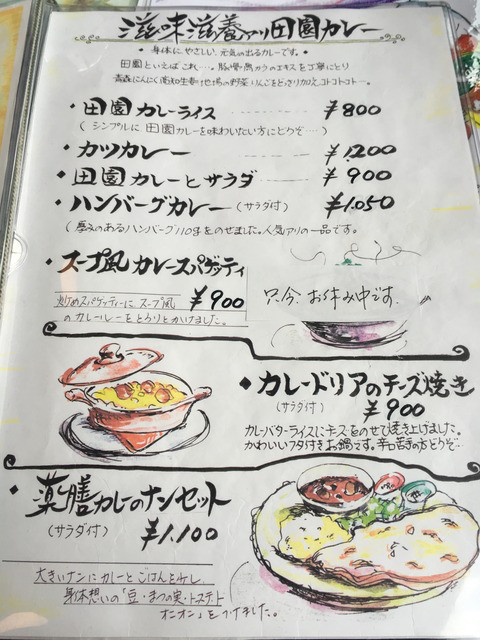 滋味滋養アリ田園カレー
・身体にやさしい、元気の出るカレーです。・
田園といえばこれ…。豚骨・鶏ガラのエキスを丁寧にとり
青森にんにく高知生姜地場の野菜りんごをどっさり加え、コトコトコトー。
・田園カレーライス ¥800
(シンプルに田園カレーを味わいたい方にどうぞ…)
・カツカレー ¥1,200
・田園カレーとサラダ ¥900
・ハンバーグカレー(サラダ付) ¥1,050
(厚みのあるハンバーグ110gをのせました。人気アリの一品です。
・スープ風カレースパゲッティ
炒めスパゲッティーにスープ風 ¥900
のカレールーをとろりとかけました。
只今、お休み中です。
◆カレードリアのチーズ焼き
(サラダ付) ¥900
カレーバターライスにチーズをのせて焼き上げました。
かわいいフタ付きお鍋です。辛口苦手の方どうぞ…
・薬膳カレーのナンセット
(サラダ付) ¥1,100
大きいナンにカレーとごはんを少し
身体想いの「豆・まつの実・トマト
オニオン」をつけました。